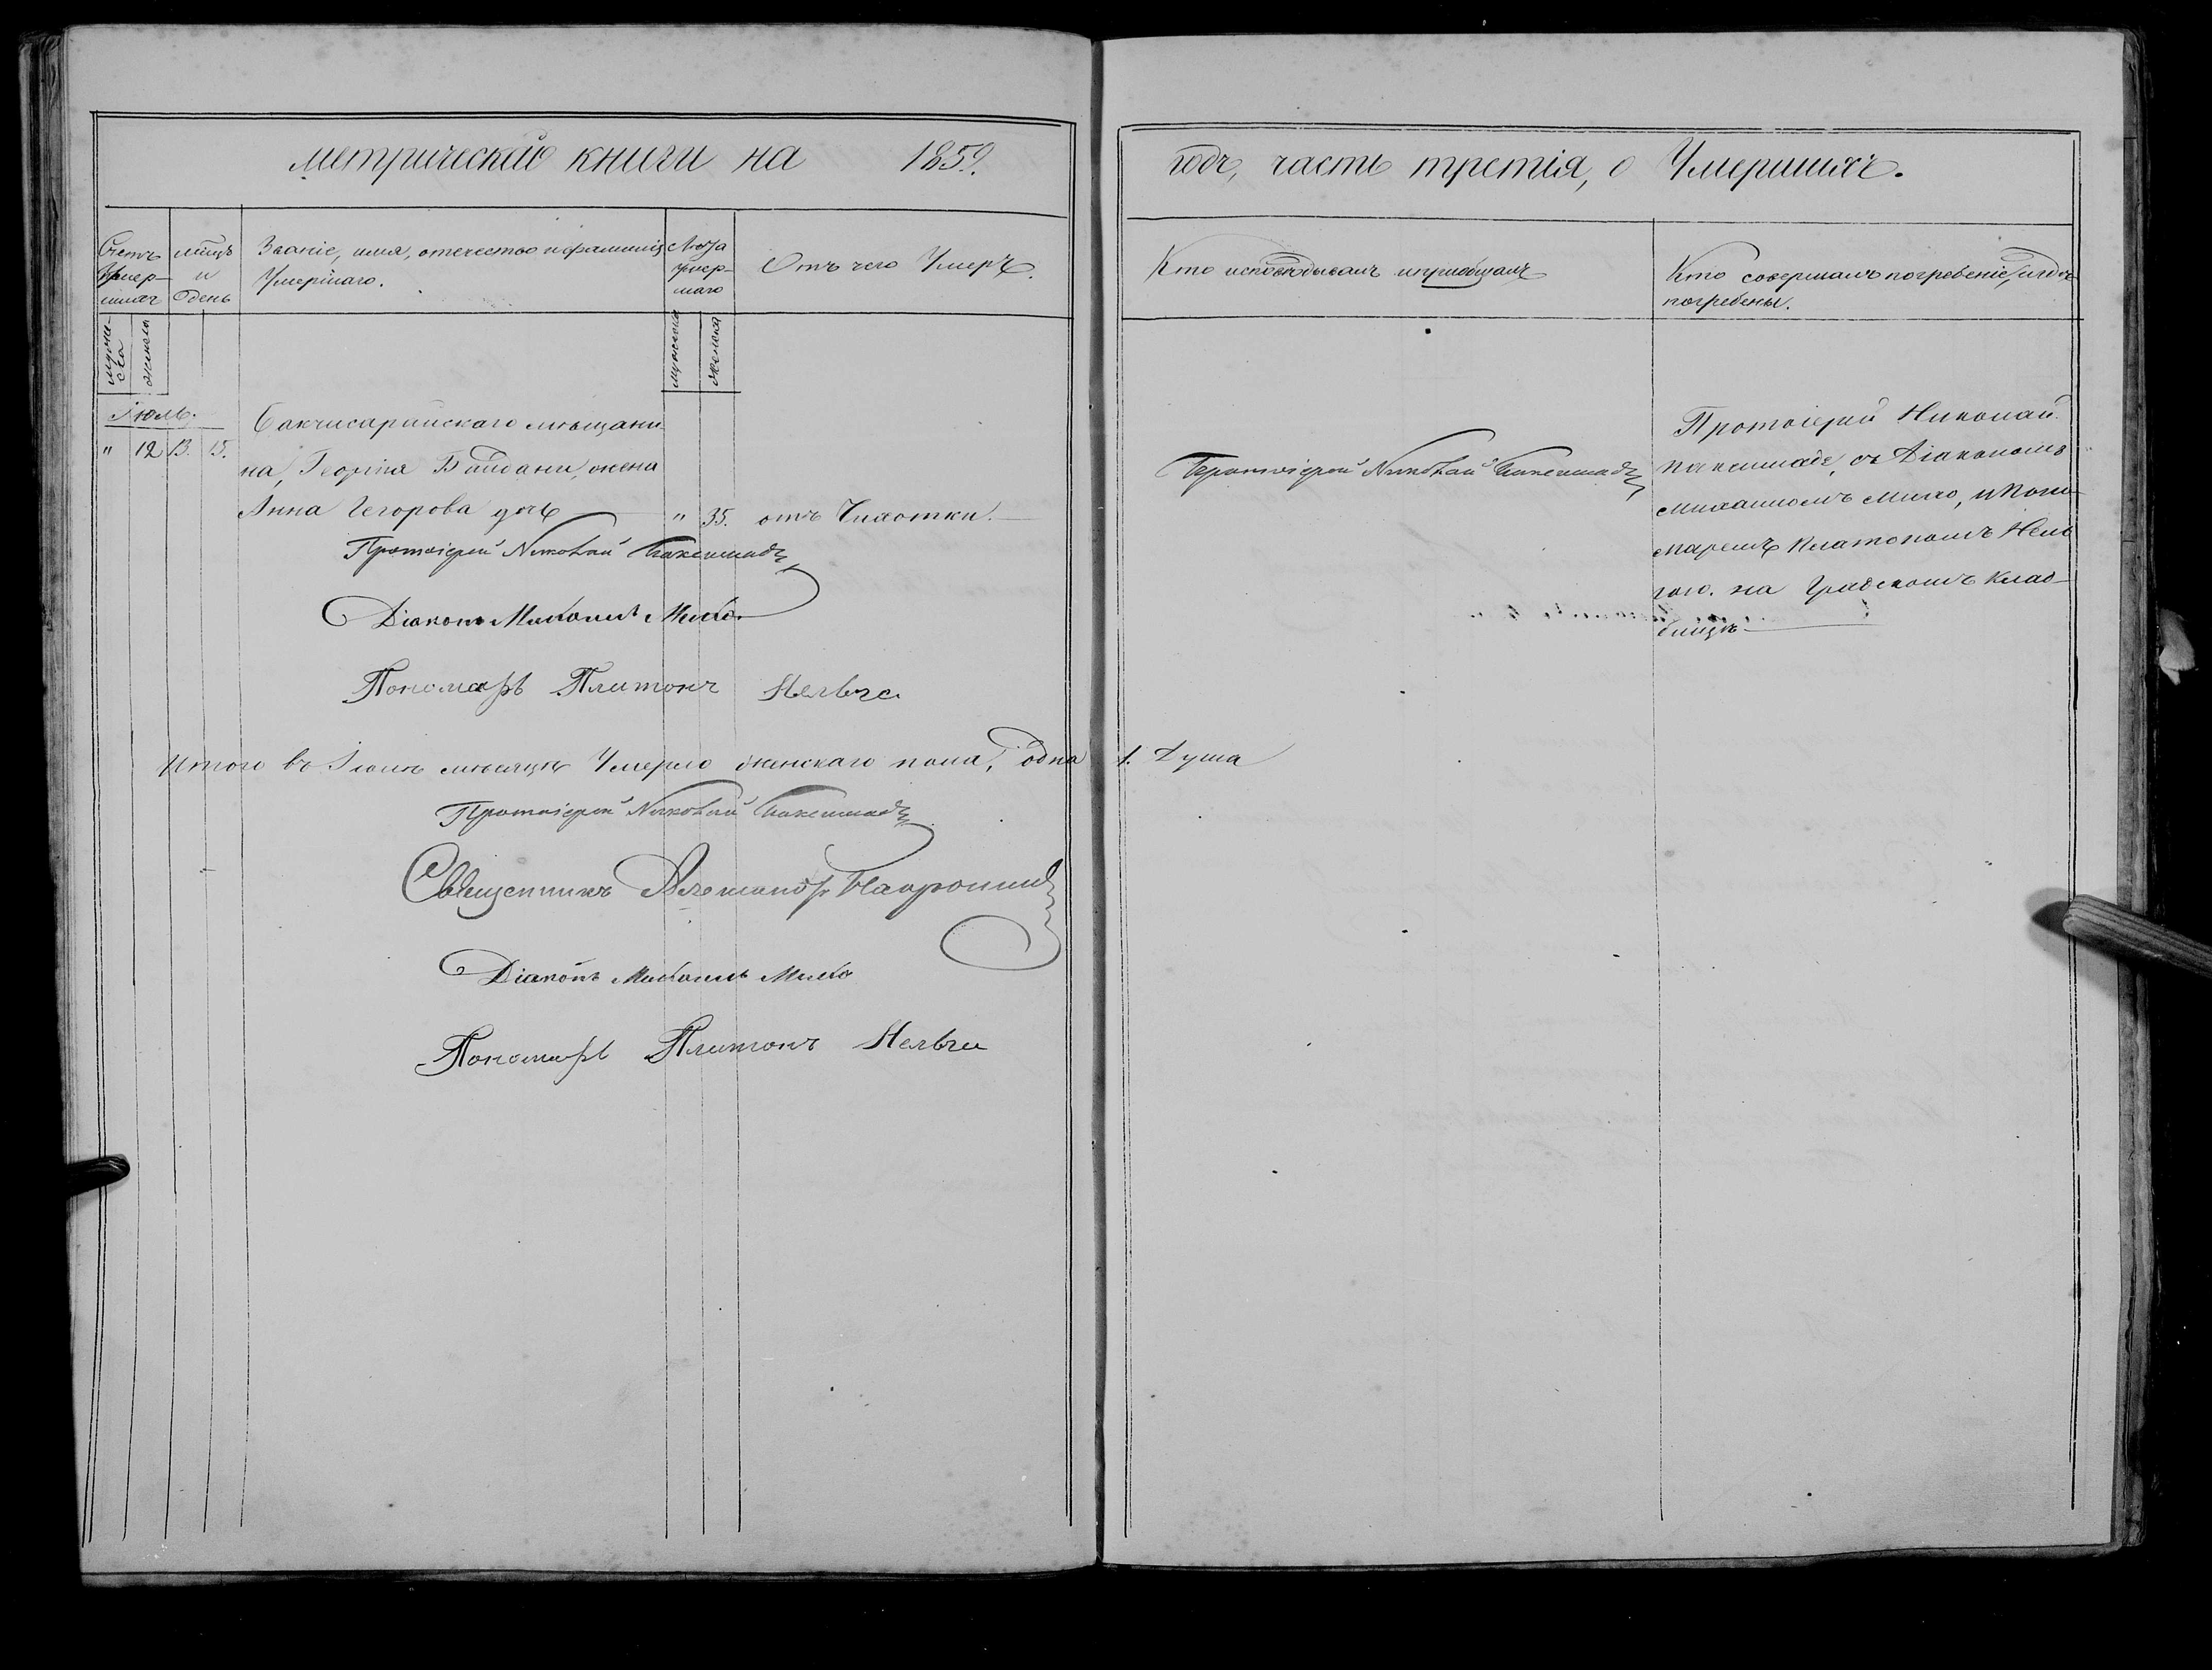 метрической книги на 1859.
годъ, часть третія, о Умершихъ.
Счетъ Умер-шихъ
мѣцъ и день
Званіе, имя, отечество и фамилія Умершаго.
Лѣта умер-шаго
Отъ чего Умеръ.
Кто исповѣдывалъ и пріобщалъ
Кто совершалъ погребеніе, и гдѣ погребены.
мужеска
женска
мужеска
женска
Іюль.
" 12 13. 15.
Бакчисарайскаго мѣщани-
на, Георгія Байдани, жена
Анна Егорова дочь " 35. отъ Чихотки.
Протоіерей Николай
съ Діакономъ
Михаиломъ Мило, и Поно-
маремъ Платономъ Нель
гою. на Градскомъ Клад-
бищѣ
Протоіерей Николай
Протоіерей Николай
Діаконъ Михаилъ Мило
Пономарь Платонъ Нельга
Итого въ Іюлѣ мѣсяцѣ Умерло женскаго пола, одна 1. Душа
Протоіерей Николай
Священникъ Александръ
Діаконъ Михаилъ Мило
Пономарь Платонъ Нельга